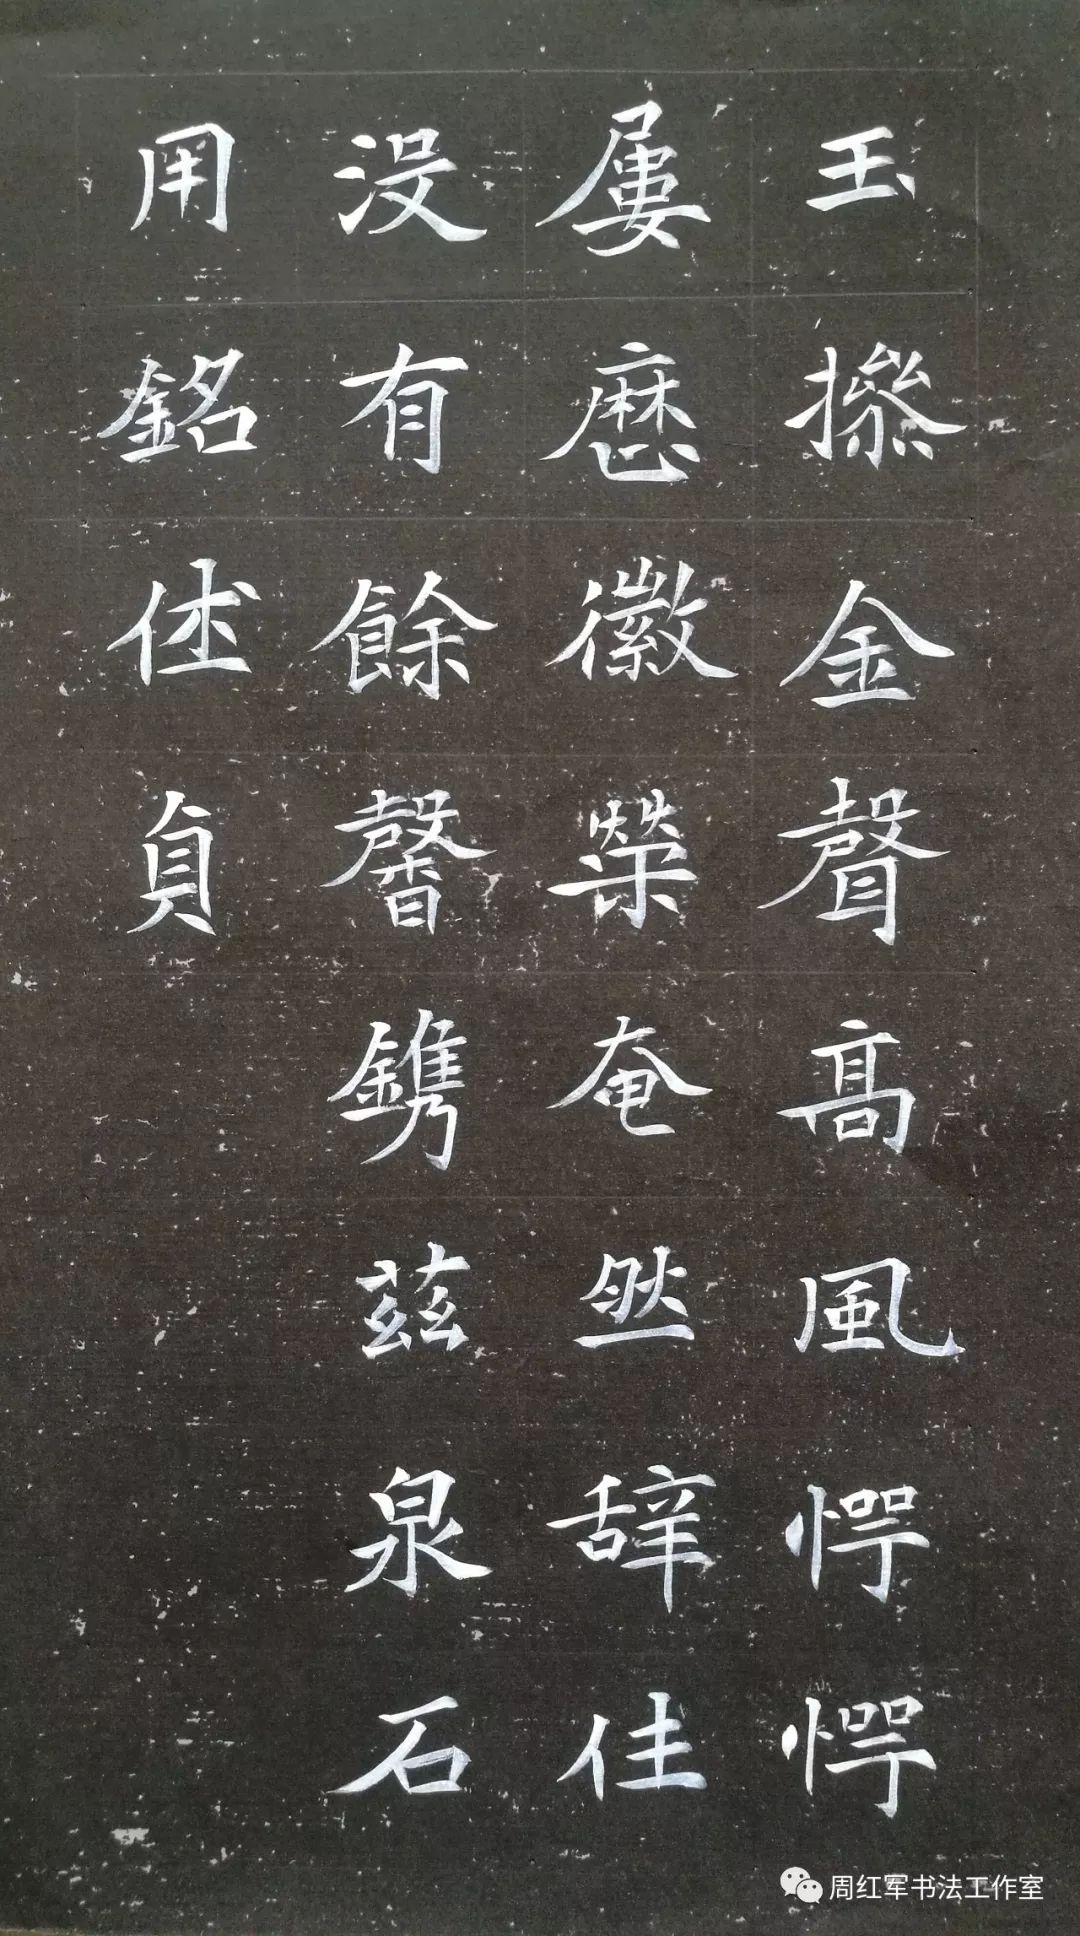 玉摻金聲高風愕愕
屢歷徽榮奄然辞佳
没有餘馨鐫茲泉石
用銘俧貞
周红军书法工作室